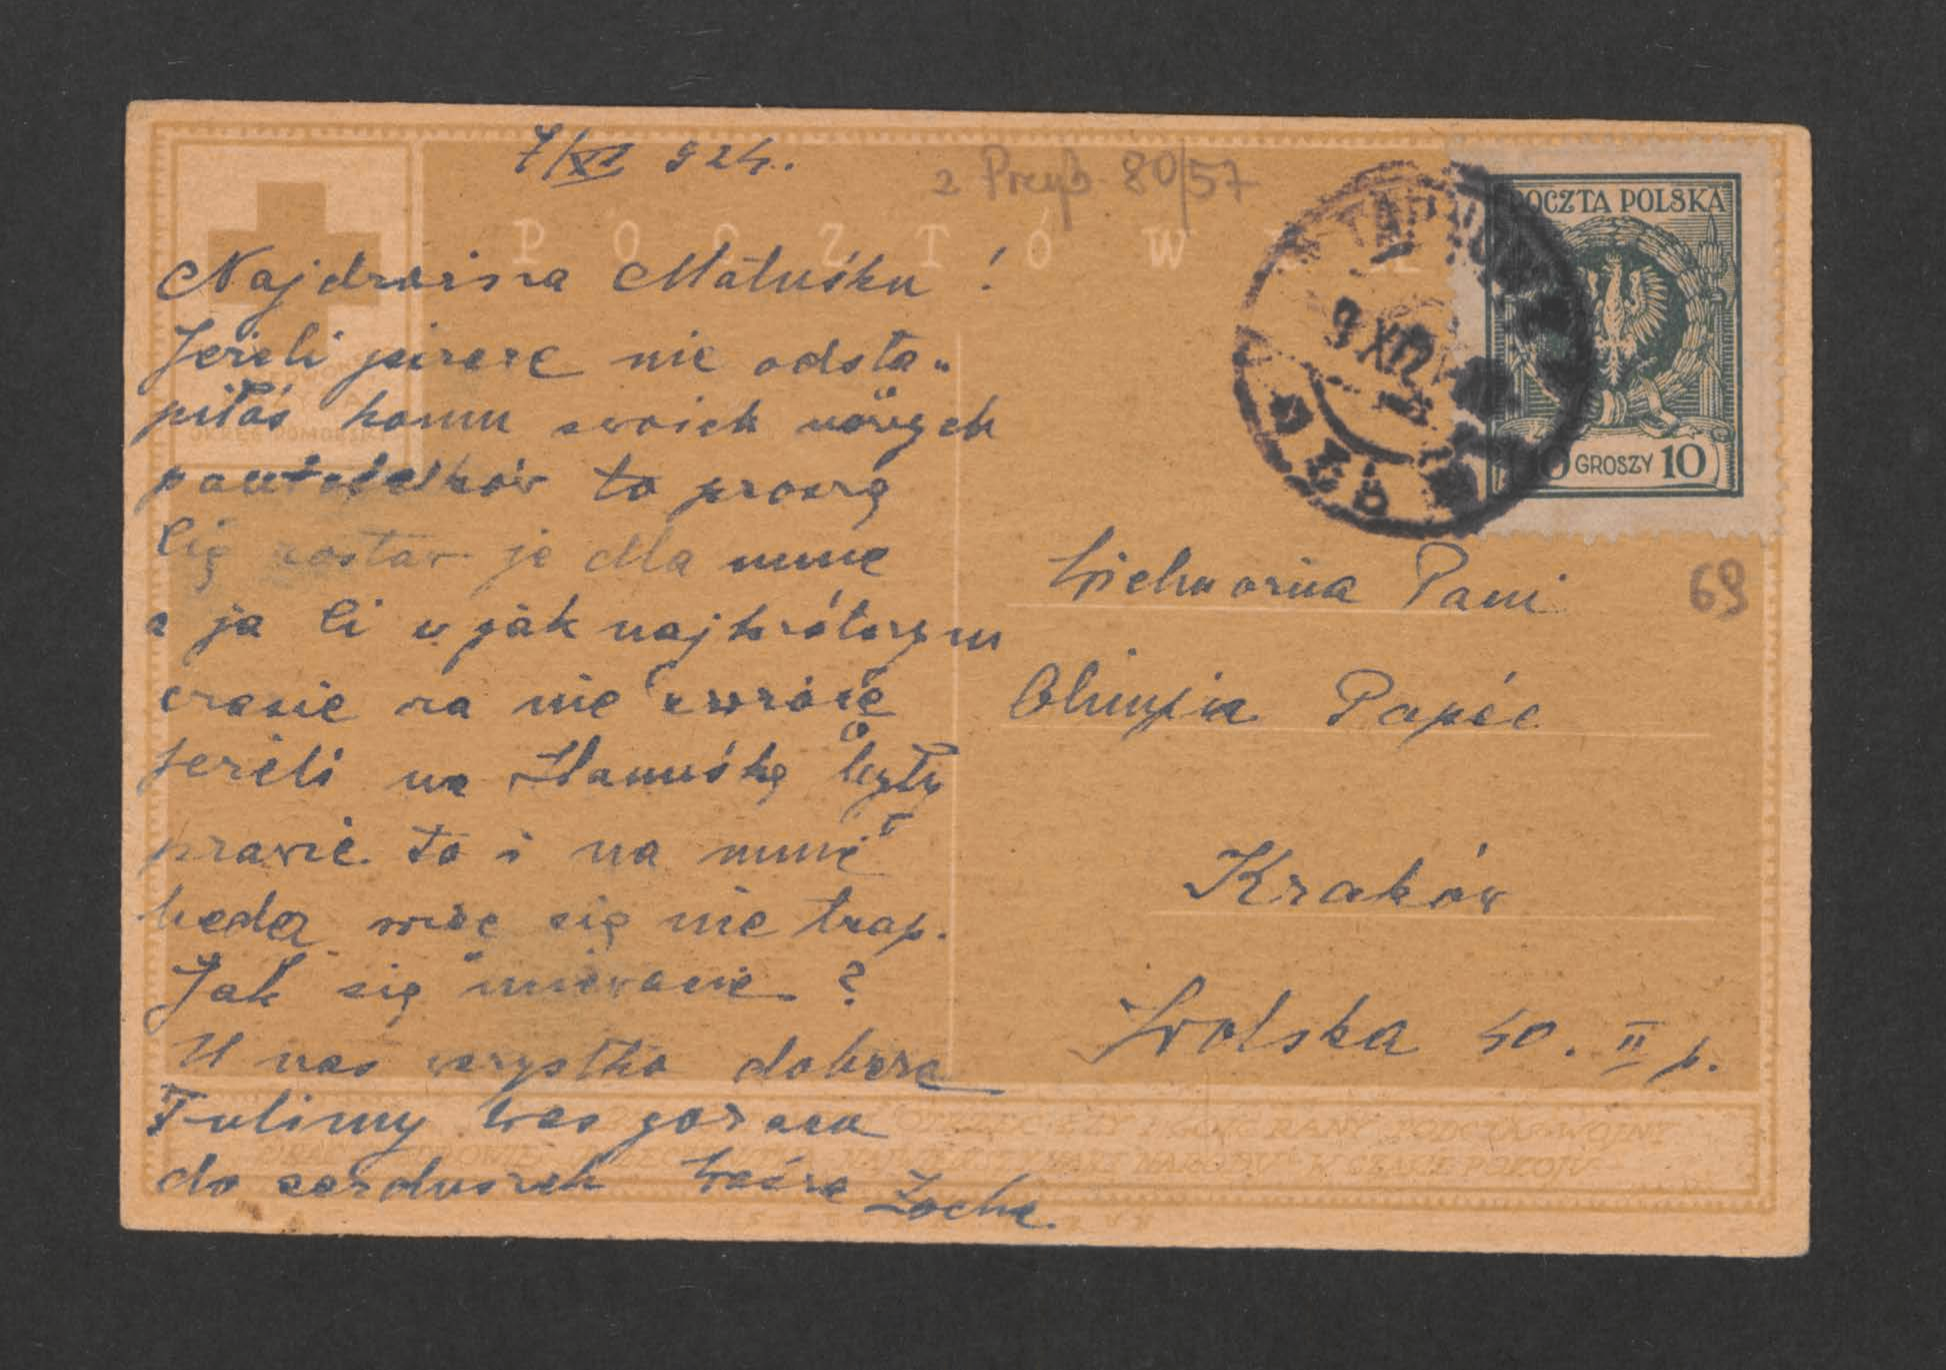 7/XI 924.
2 Przyb. 80/57
POCZTÓWKA
Najdroższa Matuśku!
Jeżeli jeszcze nie odstą„
piłaś komu swoich
pantofelków to proszę
Cię zostaw je dla mnie
a ja Ci w jak najkrótszym
czasie za nie zwrócę
jeżeli na Hanuśkę były
prawie to i na mnie
będą więc się nie trap.
Jak się miewacie?
U nas wszystko dobrze
Tulimy Was gorąco
do serduszek Wasze Zochy.
OKRĘG POMORSKI
POCZTA POLSKA
10 GROSZY 10
9 XI 2
69
Wielmożna Pani
Olimpia Papée
Kraków
Wolska 40. II p.
I GOIĆ RANY PODCZAS WOJNY
W CZASIE POKOJU